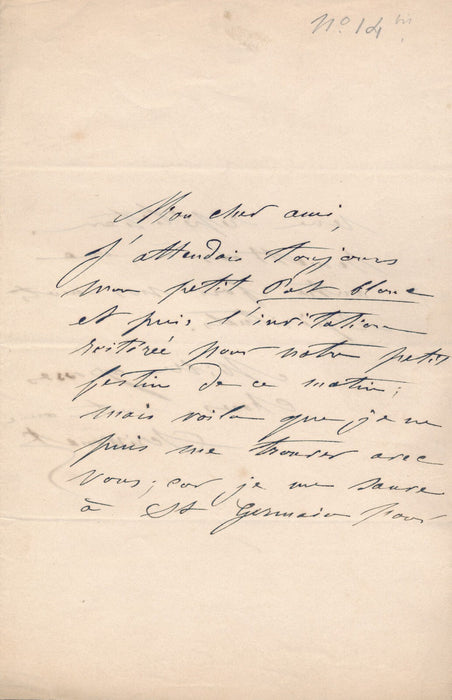 No 14 bis
Mon cher ami,
J'attendais toujours
mon petit Pat blanc
et puis l'invitation
réitérée pour notre petit
festin de ce matin ;
mais voila que je ne
puis me trouver avec
vous ; car je me sauve
à St Germain pour